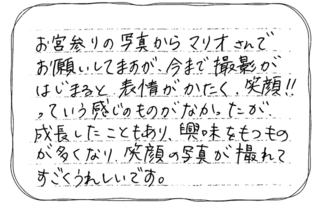 お宮参りの写真からマリオさんで
お願いしてますが、今まで撮影が
はじまると、表情がかたく、笑顔!!
っていう感じのものがなかったが、
成長したこともあり、興味をもつもの
が多くなり、笑顔の写真が撮れて、
すごくうれしいです。